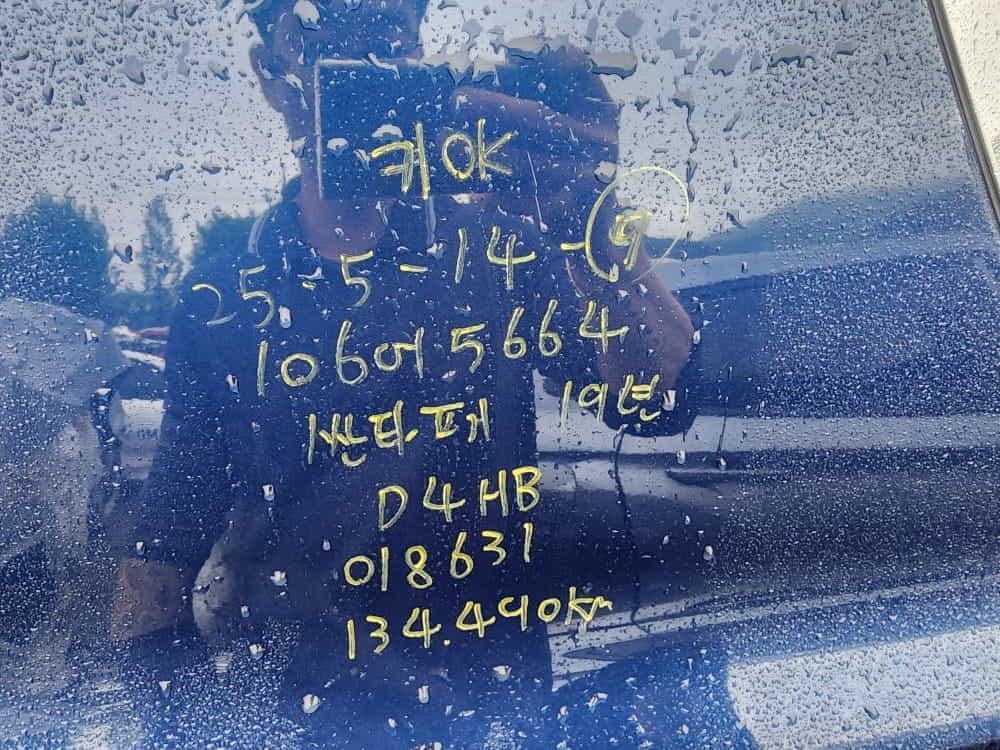 커OK
25-5-14-9
106어5664
싼타페 19년
D4HB
018631
134.490km